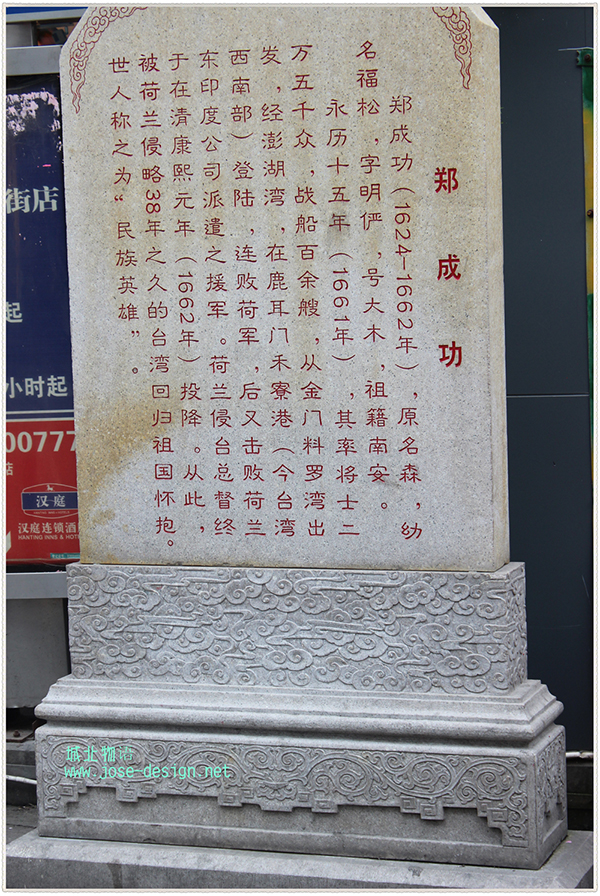 郑成功
郑成功（1624—1662年），原名森，幼
名福松，字明俨，号大木，祖籍南安。
永历十五年（1661年），其率将士二
万五千众，战船百余艘，从金门料罗湾出
发，经澎湖湾，在鹿耳门禾寮港（今台湾
西南部）登陆，连败荷军，后又击败荷兰
东印度公司派遣之援军。荷兰侵台总督终
于在清康熙元年（1662年）投降。从此，
被荷兰侵略38年之久的台湾回归祖国怀抱。
世人称之为“民族英雄”。
街店
起
小时起
00777
店
汉庭
汉庭连锁酒
HANTING INNS & HOTE
城北物语
www.jose-design.net